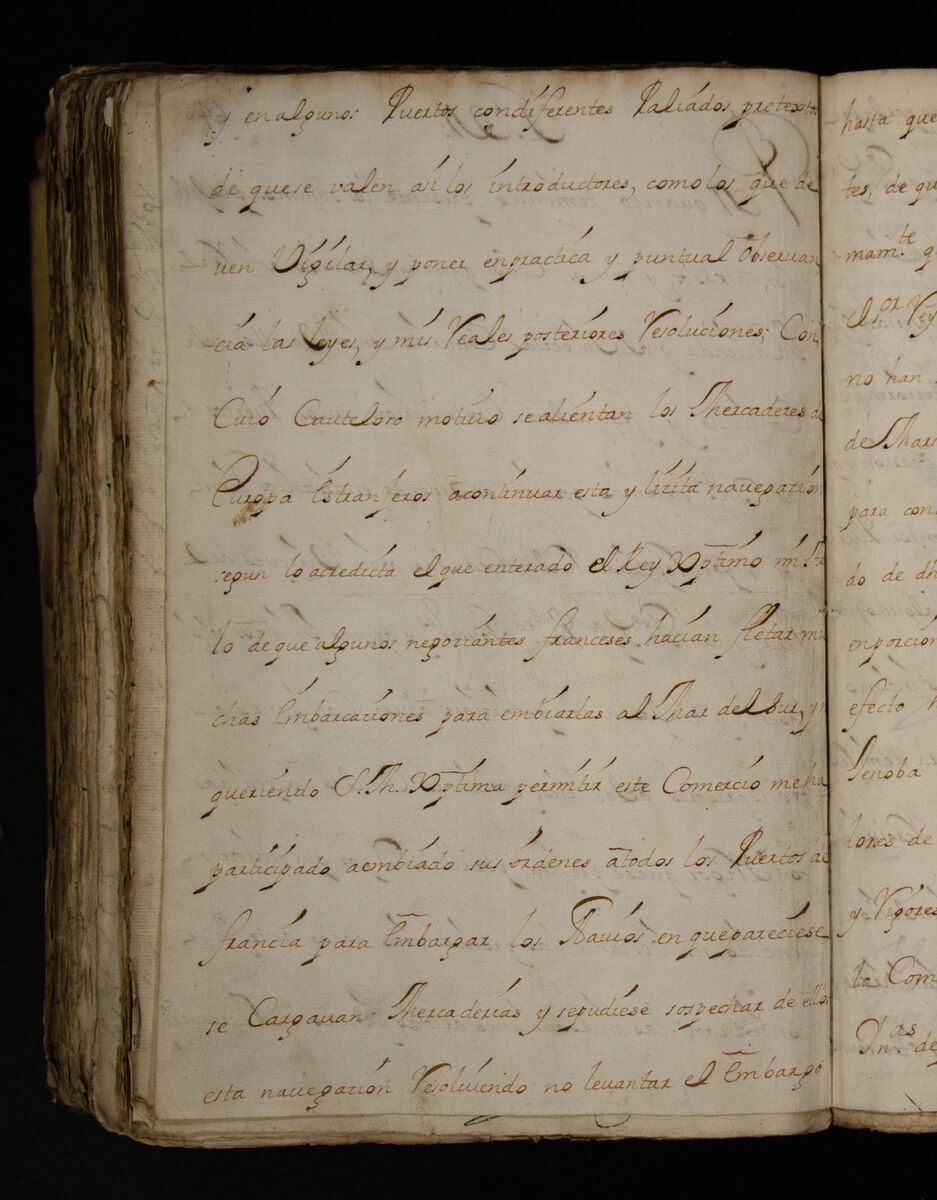 y en algunos Puertos con diferentes Paliados pretextos
de que se valen así los introductores, como los que de
uen Vigilar, y poner en practica y puntual Obseruan
cia las Leyes, y mis Reales posteriores Resoluciones; Con
Cuio Cauteloso motiuo se alientan los Mercaderes de
Europa Estranjeros a continuar esta y licita nauegacion
segun lo acredicta el que enterado el Rey Xptimo mi
lo de que algunos negociantes franceses hacian fletar mu
chas Embarcaciones para embiarlas al Mar del Sur, y
queriendo S. M. Xptima permitir este Comercio me ha
participado a embiado sus órdenes a todos los Puertos de
francia para Embargar los Nauios en que pareciese
se Cargauan Mercaderias y se pudiese sospechar de ellos
esta nauegacion Resoluiendo no leuantar el Embargo
hasta que
tes, de qu
mam.te q
el S.or Rey
no han
de Mars
para con
do de dh
en porcion
efecto
Senoba
lores de
y Vigores
to Com
In.as de